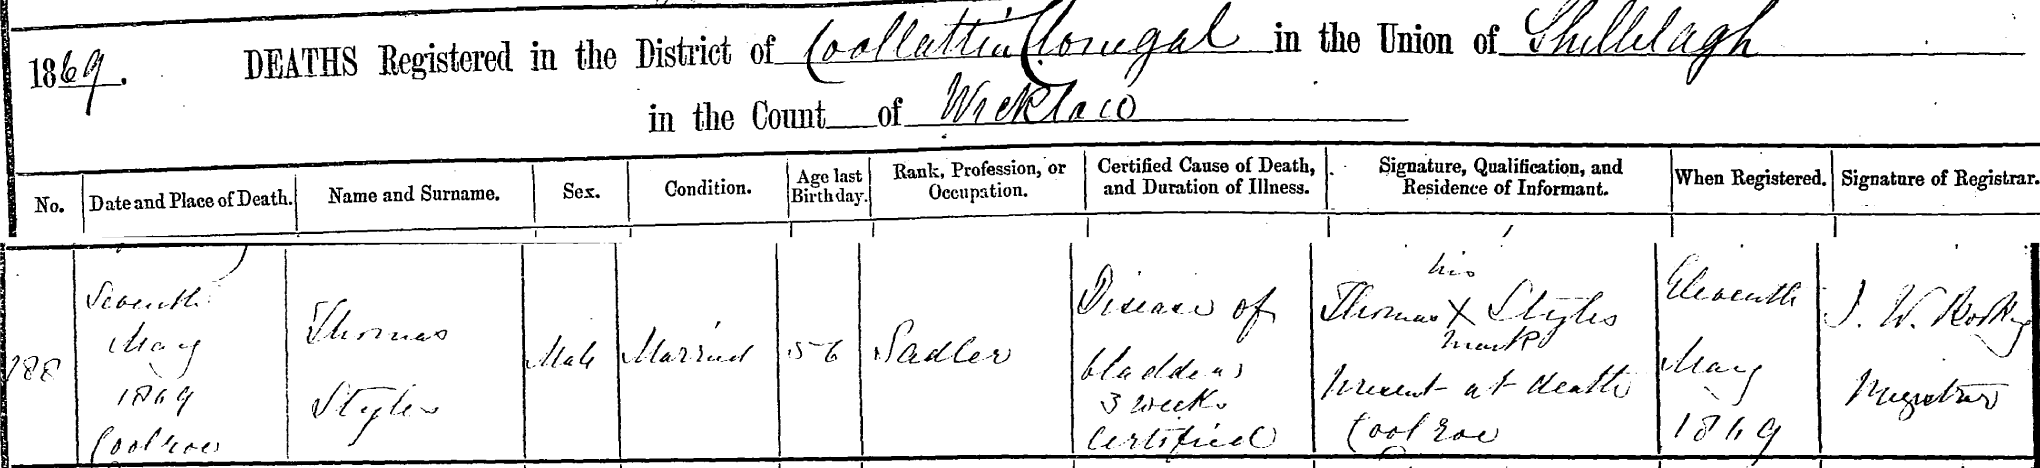 1869. DEATHS Registered in the District of Coollattin Clonegal in the Union of Shillelagh
in the Count of Wicklow
No.
Date and Place of Death.
Name and Surname.
Sex.
Condition.
Age last
Birthday.
Rank, Profession, or
Occupation.
Certified Cause of Death,
and Duration of Illness.
Signature, Qualification, and
Residence of Informant.
When Registered.
Signature of Registrar.
188
Seventh
May
1869
Coolroe
Thomas
Styles
Male
Married
56
Sadler
Disease of
bladder
3 weeks
Certified
his
Thomas X Styles
mark
present at death
Coolroe
Eleventh
May
1869
J. W.
Registrar